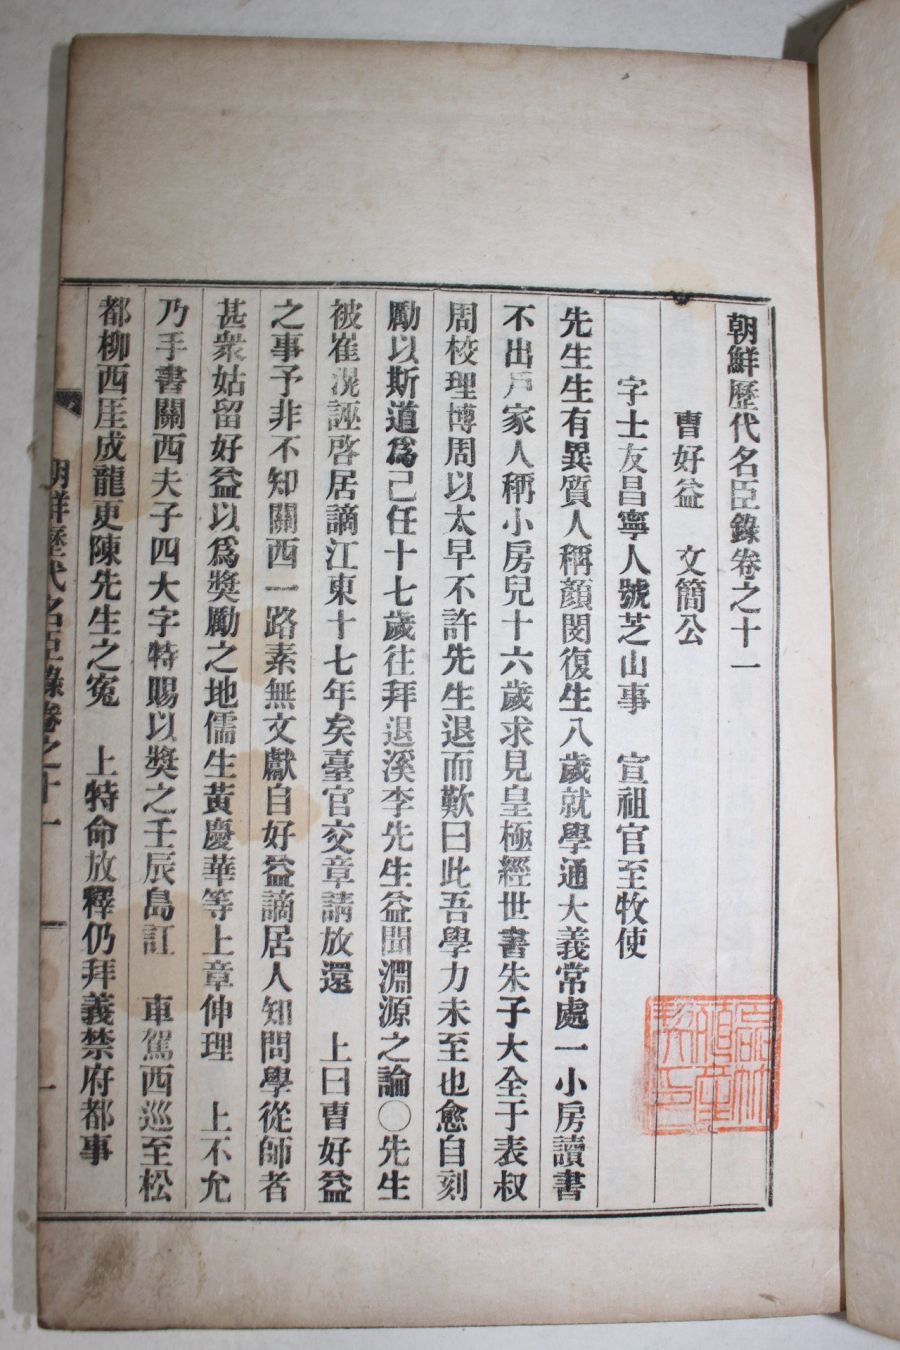 朝鮮歷代名臣錄卷之十一
曹好益 文簡公
字士友昌寧人號芝山事 宣祖官至牧使
先生生有異質人稱顏閔復生八歲就學通大義常處一小房讀書
不出戶家人稱小房兒十六歲求見皇極經世書朱子大全于表叔
周校理博周以太早不許先生退而歎曰此吾學力未至也愈自刻
勵以斯道爲己任十七歲往拜退溪李先生益聞淵源之論〇先生
被崔滉誣啓居謫江東十七年矣臺官交章請放還 上曰曹好益
之事予非不知關西一路素無文獻自好益謫居人知問學從師者
甚衆姑留好益以爲獎勵之地儒生黃慶華等上章伸理 上不允
乃手書關西夫子四大字特賜以獎之壬辰島訌 車駕西巡至松
都柳西厓成龍更陳先生之寃 上特命放釋仍拜義禁府都事
朝鮮歷代名臣錄卷之十一
一